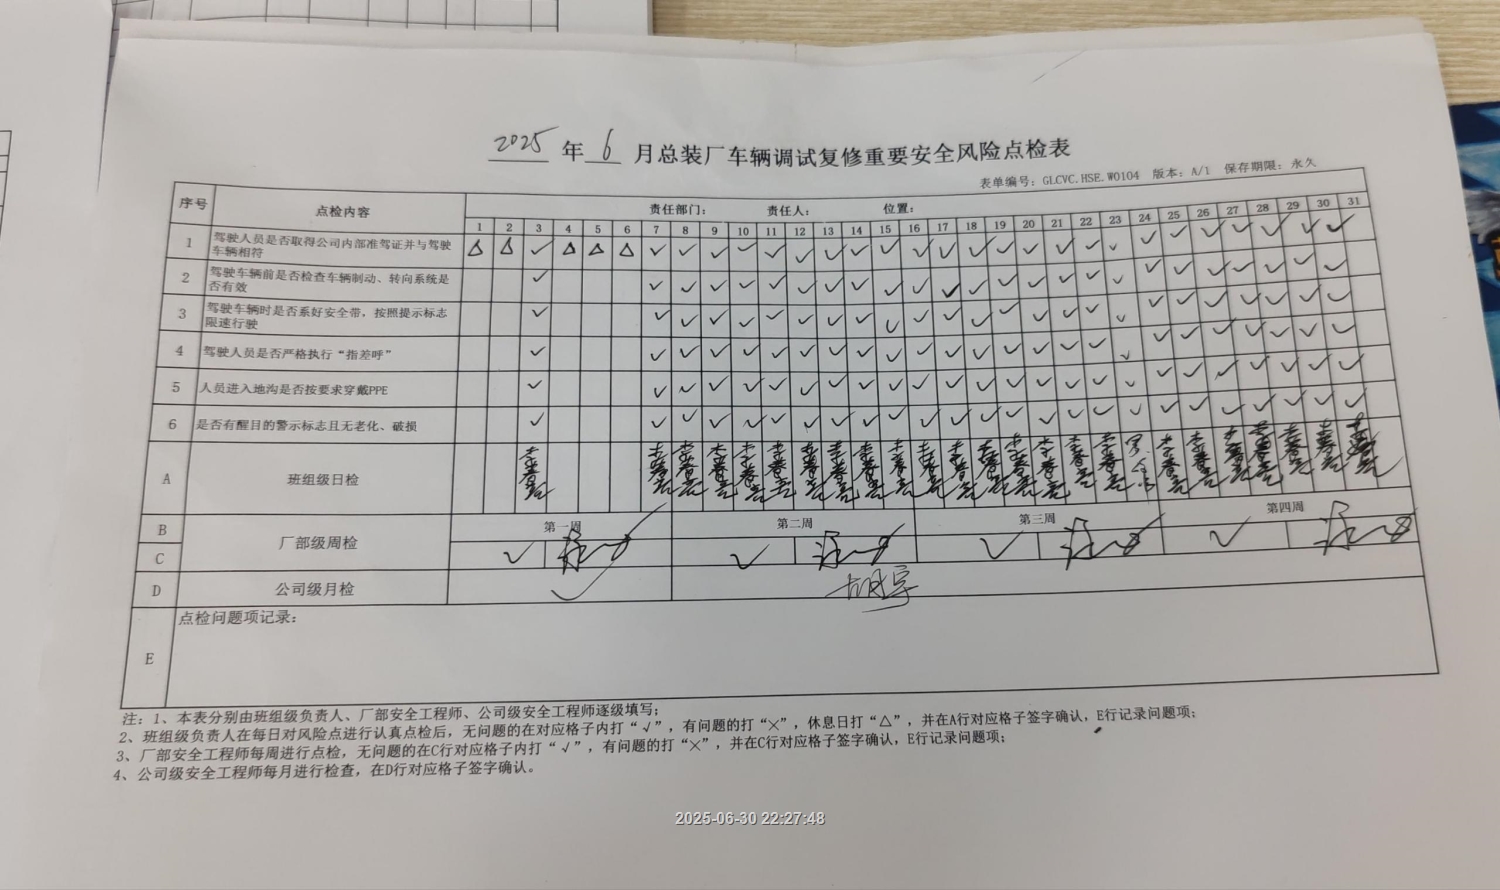 2025 年 6 月总装厂车辆调试复修重要安全风险点检表
表单编号: GLCVC.HSE.W0104 版本: A/1 保存期限: 永久
序号 点检内容 责任部门: 责任人: 位置:
1 2 3 4 5 6 7 8 9 10 11 12 13 14 15 16 17 18 19 20 21 22 23 24 25 26 27 28 29 30 31
1 驾驶人员是否取得公司内部准驾证并与驾驶车辆相符 △ △ ✓ △ △ △ ✓ ✓ ✓ ✓ ✓ ✓ ✓ ✓ ✓ ✓ ✓ ✓ ✓ ✓ ✓ ✓ ✓ ✓ ✓ ✓ ✓ ✓ ✓ ✓ ✓
2 驾驶车辆前是否检查车辆制动、转向系统是否有效 ✓ ✓ ✓ ✓ ✓ ✓ ✓ ✓ ✓ ✓ ✓ ✓ ✓ ✓ ✓ ✓ ✓ ✓ ✓ ✓ ✓ ✓ ✓ ✓ ✓ ✓
3 驾驶车辆时是否系好安全带，按照提示标志限速行驶 ✓ ✓ ✓ ✓ ✓ ✓ ✓ ✓ ✓ ✓ ✓ ✓ ✓ ✓ ✓ ✓ ✓ ✓ ✓ ✓ ✓ ✓ ✓ ✓ ✓ ✓
4 驾驶人员是否严格执行“指差呼” ✓ ✓ ✓ ✓ ✓ ✓ ✓ ✓ ✓ ✓ ✓ ✓ ✓ ✓ ✓ ✓ ✓ ✓ ✓ ✓ ✓ ✓ ✓ ✓ ✓ ✓
5 人员进入地沟是否按要求穿戴PPE ✓ ✓ ✓ ✓ ✓ ✓ ✓ ✓ ✓ ✓ ✓ ✓ ✓ ✓ ✓ ✓ ✓ ✓ ✓ ✓ ✓ ✓ ✓ ✓ ✓ ✓
6 是否有醒目的警示标志且无老化、破损 ✓ ✓ ✓ ✓ ✓ ✓ ✓ ✓ ✓ ✓ ✓ ✓ ✓ ✓ ✓ ✓ ✓ ✓ ✓ ✓ ✓ ✓ ✓ ✓ ✓ ✓
A 班组级日检
B 厂部级周检 第一周 第二周 第三周 第四周
C ✓ ✓ ✓ ✓
D 公司级月检 ✓
E 点检问题项记录:
注: 1、本表分别由班组级负责人、厂部安全工程师、公司级安全工程师逐级填写;
2、班组级负责人在每日对风险点进行认真点检后，无问题的在对应格子内打“√”，有问题的打“×”，休息日打“△”，并在A行对应格子签字确认，E行记录问题项;
3、厂部安全工程师每周进行点检，无问题的在C行对应格子内打“√”，有问题的打“×”，并在C行对应格子签字确认，E行记录问题项;
4、公司级安全工程师每月进行检查，在D行对应格子签字确认。
2025-06-30 22:27:48